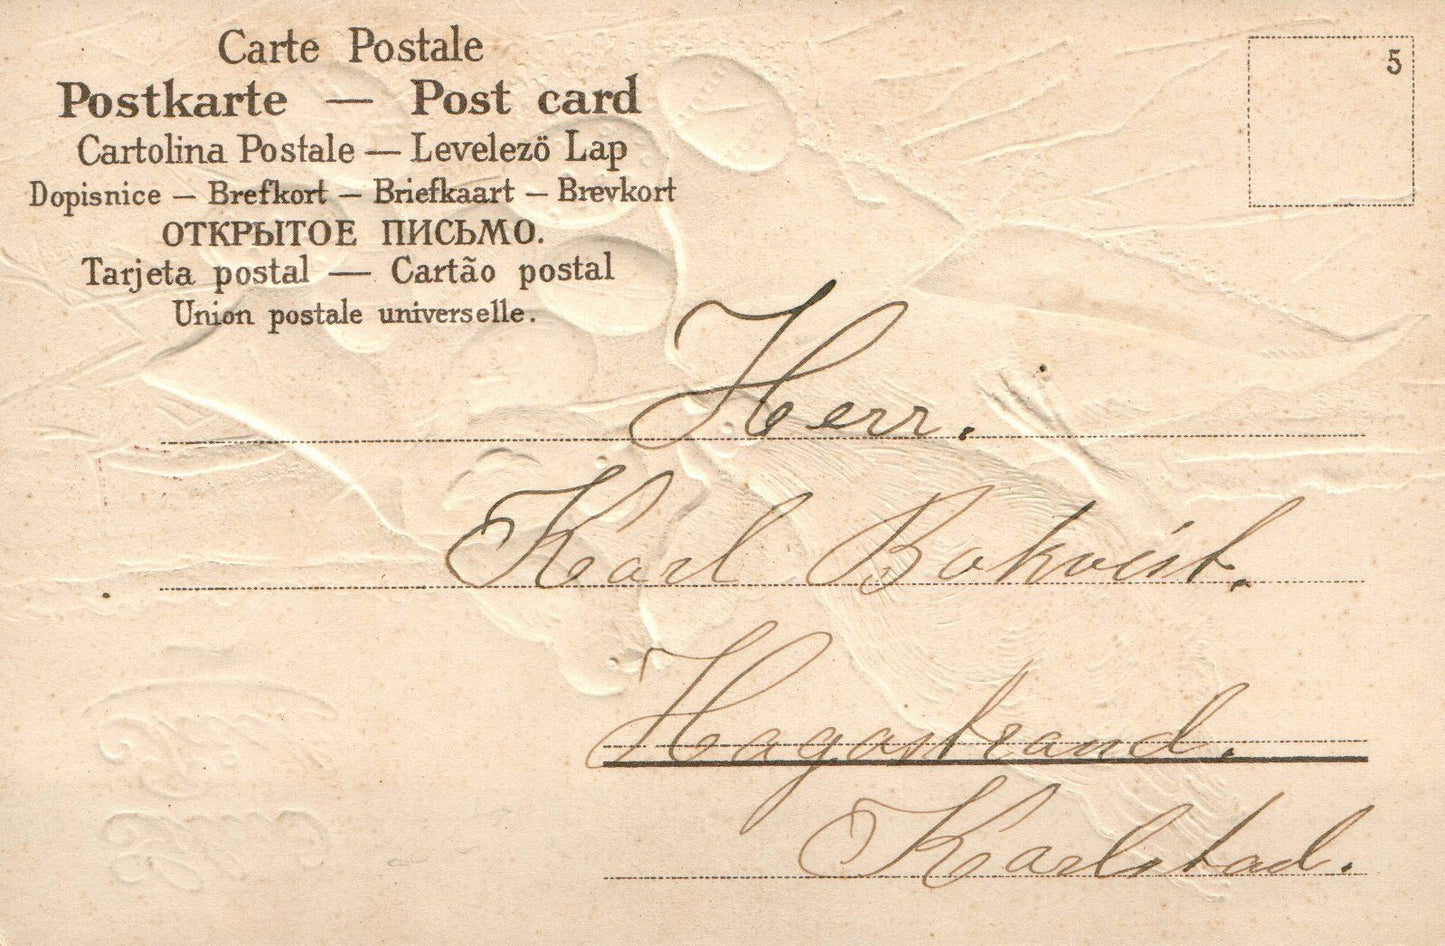 Carte Postale
Postkarte — Post card
Cartolina Postale — Levelező Lap
Dopisnice — Brefkort — Briefkaart — Brevkort
ОТКРЫТОЕ ПИСЬМО.
Tarjeta postal — Cartão postal
Union postale universelle.
5
Herr.
Karl Bokvist.
Hagastrand.
Karlstad.